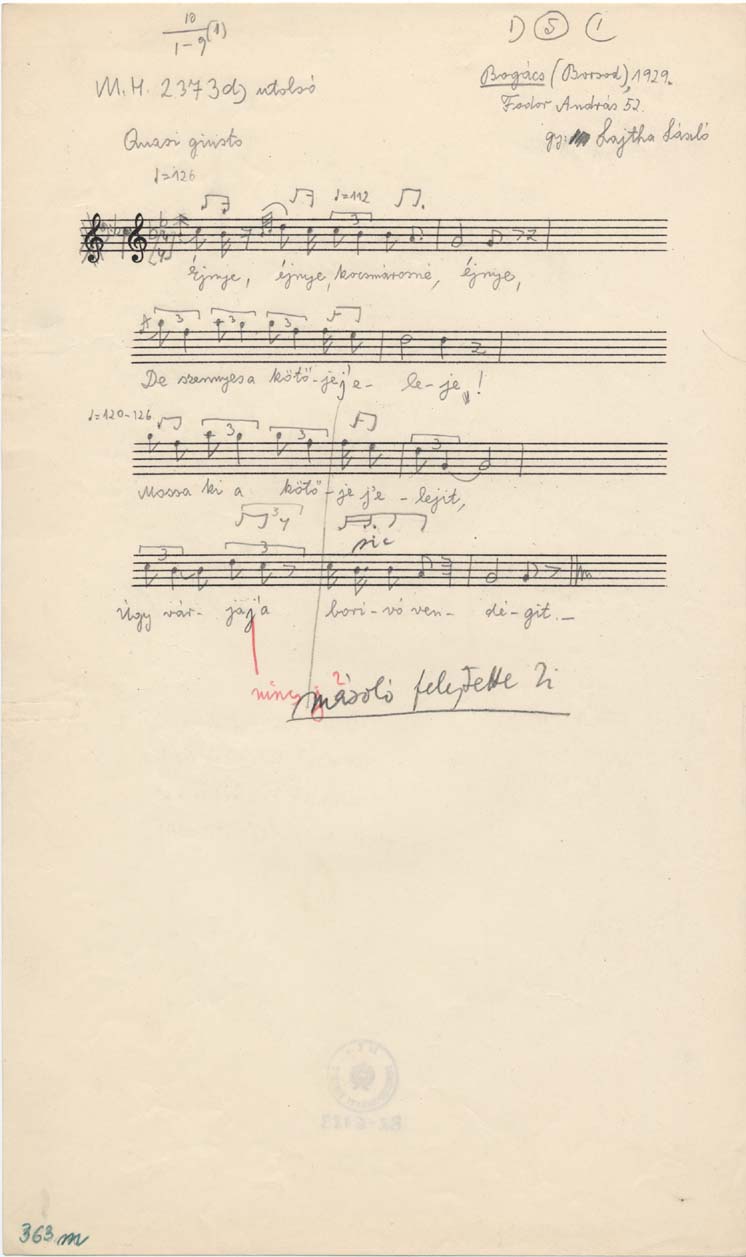 10
1-9 (1)
1) 5 (
M.H. 2373d) utolsó
Bogács (Borsod), 1929.
Fodor András 52.
gy: Lajtha László
Quasi giusto
♩=126
♩=112
3
Éjnye, éjnye, kocsmárosné, éjnye,
3 3 3
De szennyes a kötő-jeje-le-je!
♩=120-126
3 3 3
Mossa ki a kötő-je je-lejit,
3
sic
3 3
Úgy vár-jája bori-vó ven-dé-git.
nincs j?
másoló felejtette ki
363 m